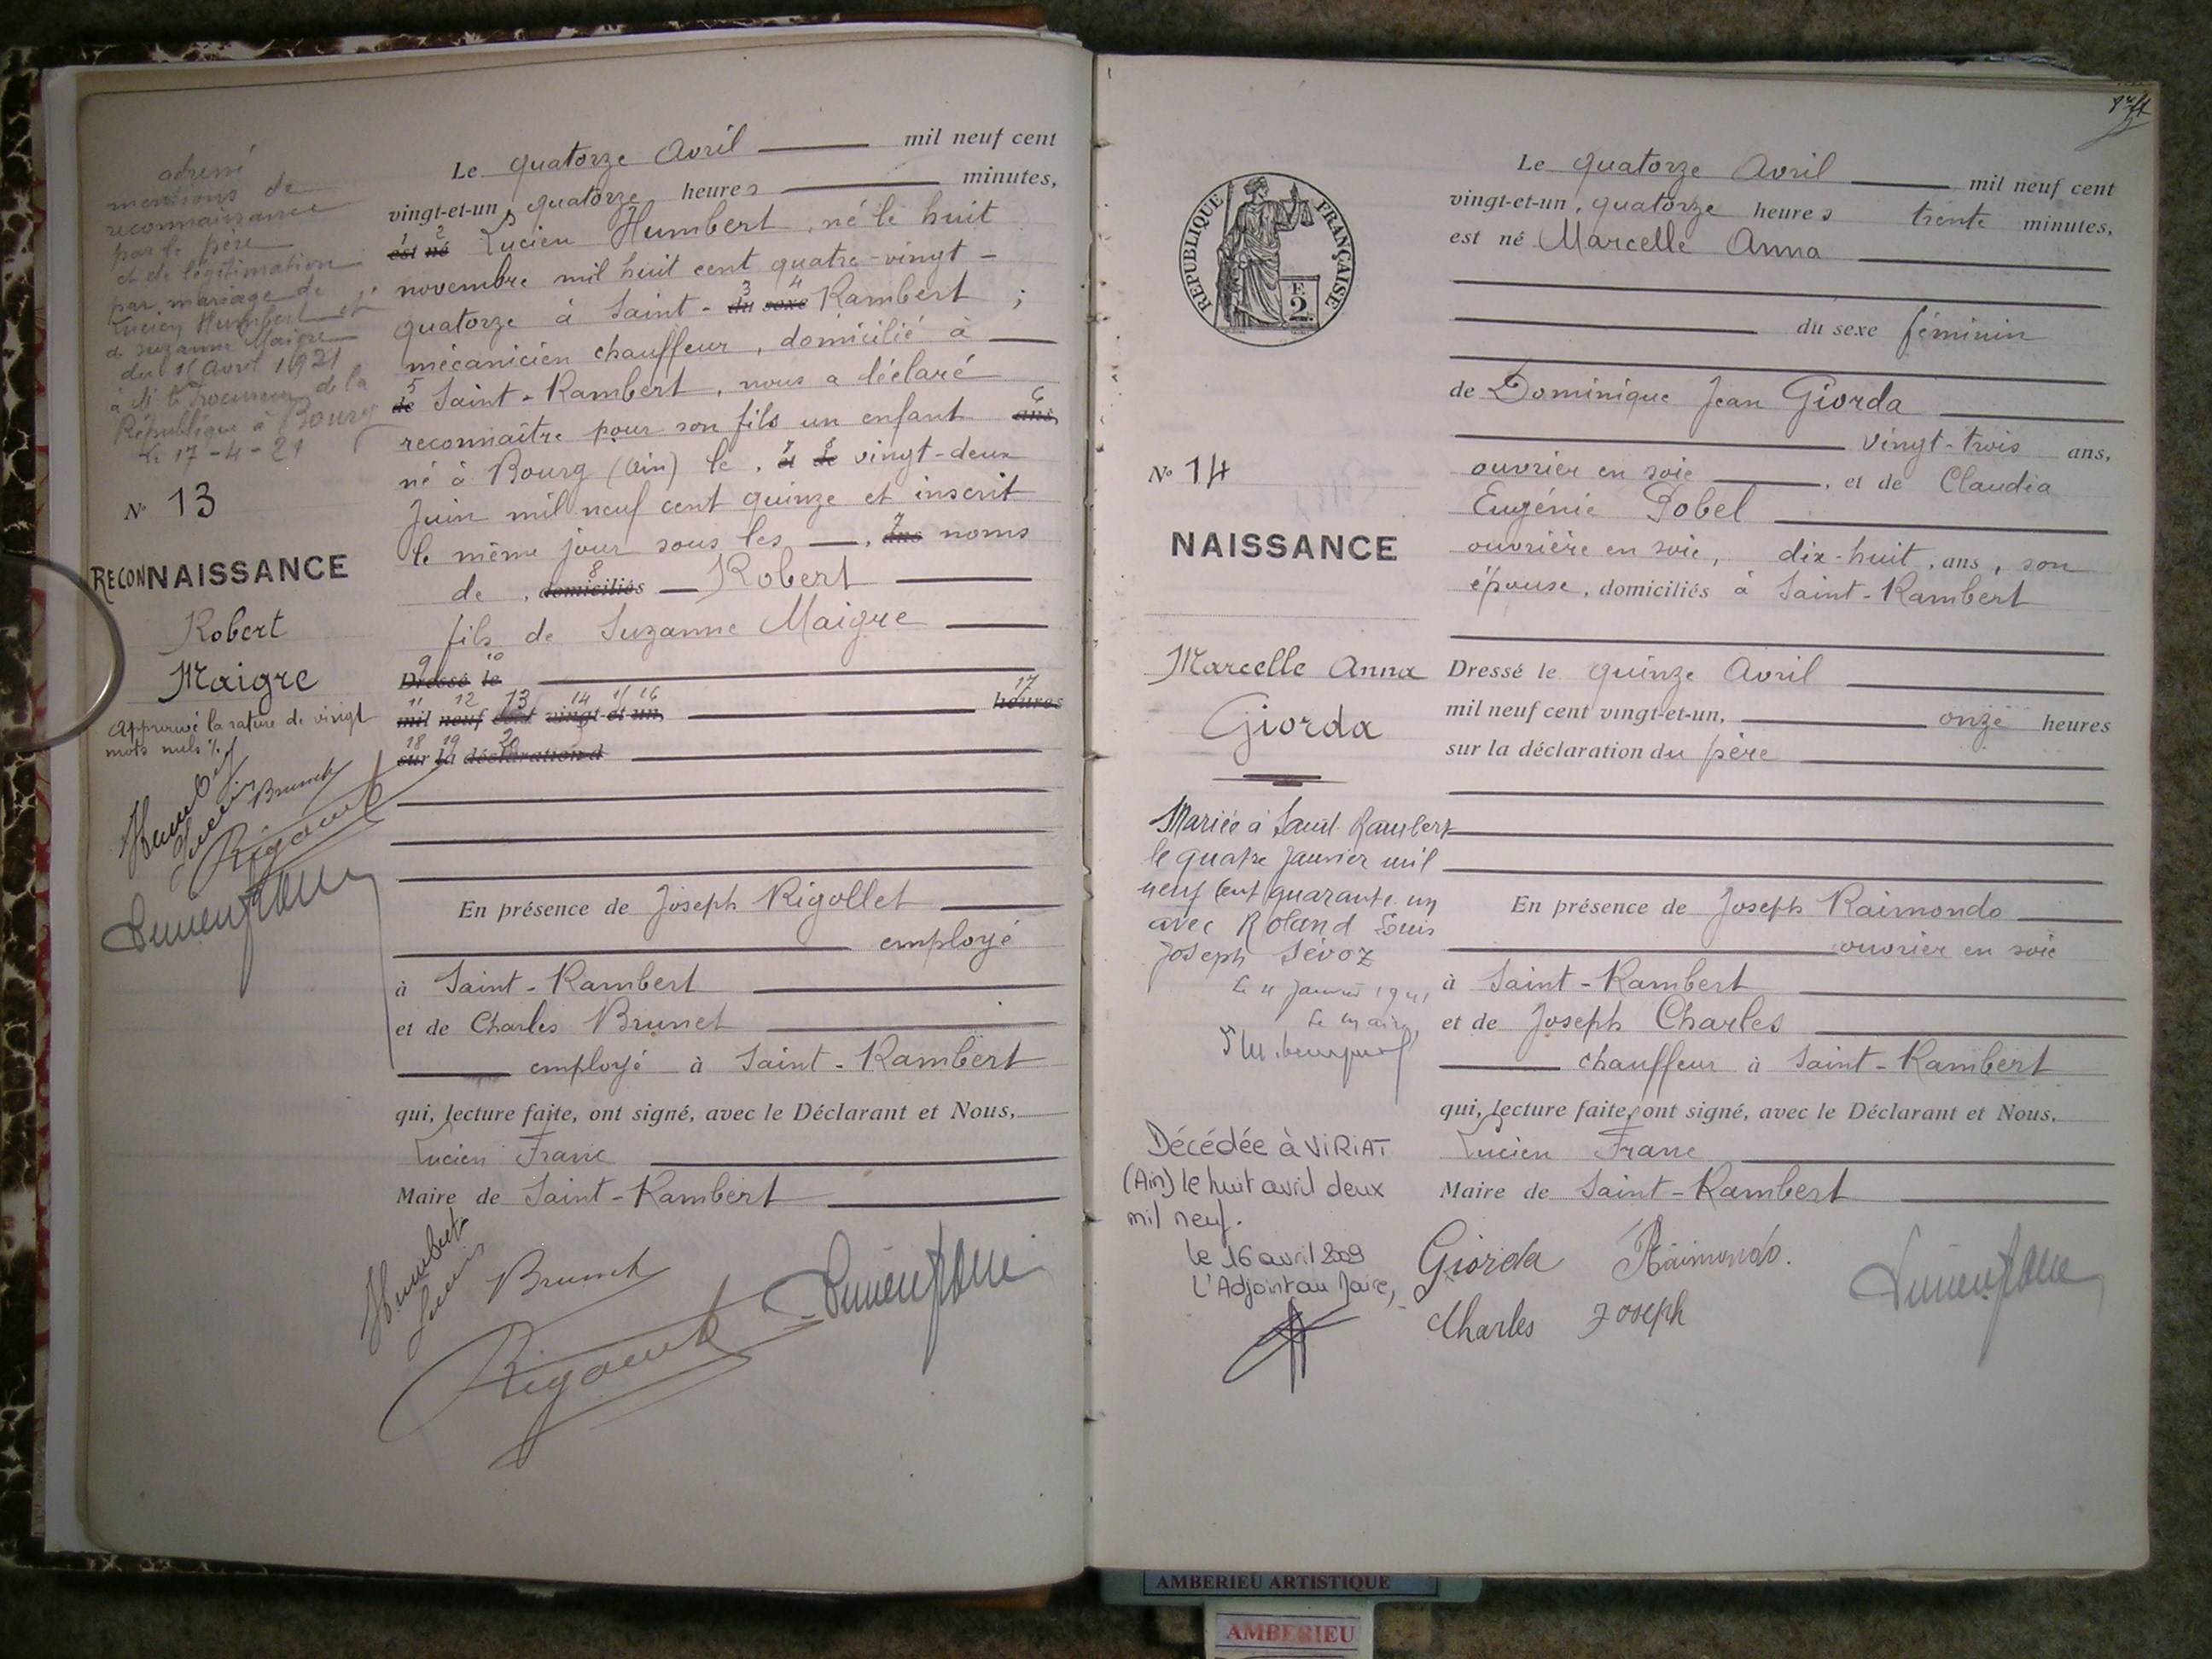 adressé
mentions de
reconnaissance
par le père
et de légitimation
par mariage de
Lucien Humbert et
de Suzanne Maigre
du 16 Avril 1921
à M le Procureur de la
République à Bourg
le 17-4-21
N° 13
RECONNAISSANCE
Robert
Maigre
Approuvé la rature de vingt
mots nuls
Humbert
Lucien
Brunet
Le quatorze Avril mil neuf cent
vingt-et-un, quatorze heures minutes,
1 2
est né Lucien Humbert, né le huit
novembre mil huit cent quatre-vingt-
3 4
quatorze à Saint- du sexe Rambert ;
mécanicien chauffeur, domicilié à
5
de Saint-Rambert, nous a déclaré
6
reconnaître pour son fils un enfant ans,
né à Bourg (Ain) le , et de vingt-deux
Juin mil neuf cent quinze et inscrit
7
le même jour sous les , ans noms
8
de , domiciliés Robert
fils de Suzanne Maigre
9 10
Dressé le
11 12 13 14 15 16 17
mil neuf cent vingt-et-un, heures
18 19 20
sur la déclaration d
En présence de Joseph Rigollet
employé
à Saint-Rambert
et de Charles Brunet
employé à Saint-Rambert
qui, lecture faite, ont signé, avec le Déclarant et Nous,
Lucien Franc
Maire de Saint-Rambert
Humbert
Lucien
Brunet
Lucien Franc
REPUBLIQUE FRANÇAISE
E
2.
N° 14
NAISSANCE
Marcelle Anna
Giorda
Mariée à Saint Rambert
le quatre Janvier mil
neuf cent quarante un
avec Roland Louis
Joseph Sévoz
Le 4 Janvier 1941
Le Maire,
Décédée à VIRIAT
(Ain) le huit avril deux
mil neuf.
le 16 avril 2009
L'Adjoint au Maire,
Le quatorze Avril mil neuf cent
vingt-et-un, quatorze heures trente minutes,
est né Marcelle Anna
du sexe féminin
de Dominique Jean Giorda
vingt-trois ans,
ouvrier en soie , et de Claudia
Eugénie Pobel
ouvrière en soie, dix-huit, ans, son
épouse, domiciliés à Saint-Rambert
Dressé le quinze Avril
mil neuf cent vingt-et-un, onze heures
sur la déclaration du père
En présence de Joseph Raimondo
ouvrier en soie
à Saint-Rambert
et de Joseph Charles
chauffeur à Saint-Rambert
qui, lecture faite, ont signé, avec le Déclarant et Nous,
Lucien Franc
Maire de Saint-Rambert
Giorda Raimondo.
Charles Joseph
Lucien Franc
AMBERIEU ARTISTIQUE
AMBERIEU